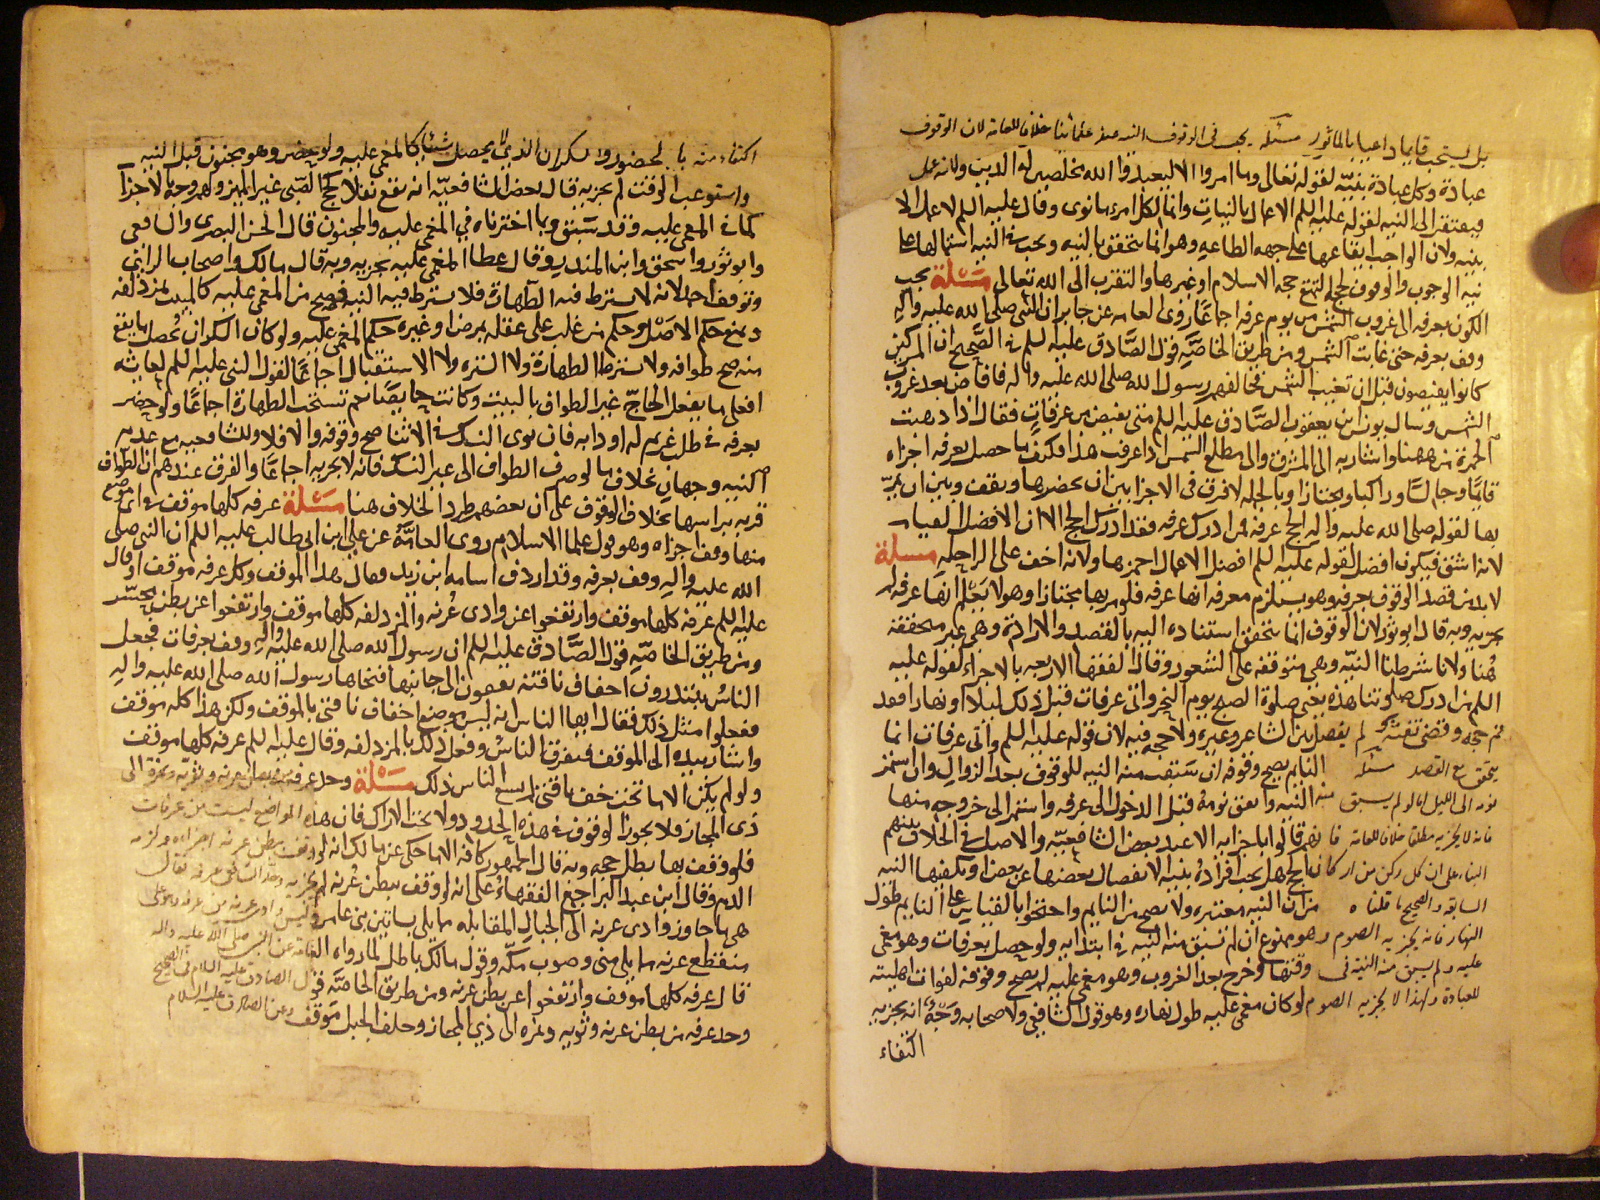 بل يستحب قايما داعيا بالماثور مسئله يجب في الوقوف النيه عند علمائنا خلافا للعامه لان الوقوف
عبادة وكل عبادة بنيّة لقوله تعالى وما امروا الا ليعبدوا الله مخلصين له الدين ولانه عمل
فيفتقر الى النيه لقوله عليه السلم الاعمال بالنيات وانما لكل امرء ما نوى وقال عليه السلم لا عمل الا
بنيه ولان الواجب ايقاعها على جهه الطاعه وهو انما يتحقق بالنيه ويجب في النيه اشتمالها على
نيه الوجوب والوقوف لحج التمتع حجه الاسلام او غيرها والتقرب الى الله تعالى مسئلة يجب
الكون بعرفه الى غروب الشمس من يوم عرفه اجماعا روى العامه عن جابر ان النبي صلى الله عليه وآله
وقف بعرفه حتى غابت الشمس ومن طريق الخاصّه قول الصّادق عليه السلم في الصّحيح ان المشركين
كانوا يفيضون قبل ان تغيب الشمس فخالفهم رسول الله صلى الله عليه واله فافاض بعد غروب
الشمس وسال يونس بن يعقوب الصّادق عليه السلم متى نفيض من عرفات فقال اذا ذهبت
الحمرة من ههنا واشار بيده الى المشرق والى مطلع الشمس اذا عرفت هذا فكيف ما حصل بعرفه اجزاه
قايما وجالسا وراكبا ومجتازا وبالجمله لا فرق في الاجزا بين ان يحضرها ويقف وبين ان يمرّ
بها لقوله صلى الله عليه واله الحج عرفه فمن ادرك عرفه فقد ادرك الحج الا ان الافضل القيام
لانه اشق فيكون افضل لقوله عليه السلم افضل الاعمال احمزها ولانه اخف على الراحله مسئلة
لا بد من قصد الوقوف بعرفه وهو يستلزم معرفه انها عرفه فلو مر بها مجتازا وهو لا يعلم انها عرفه لم
يجزيه وبه قال ابو ثور لان الوقوف انما يتحقق استناده اليه بالقصد والارادة وهي غير متحققه
هنا ولانا شرطنا النيّه وهي متوقفه على الشعور وقال الفقها الاربعه بالاجزاء لقوله عليه
السلم من ادرك صلوتنا هذه يعني صلوة الصبح يوم النحر واتى عرفات قبل ذلك ليلا او نهارا فقد
تم حجه وقضى تفثه لم يفصل بين الشاعر وغيره ولا حجه فيه لان قوله عليه السلم واتى عرفات انما
يتحقق مع القصد مسئله النايم يصح وقوفه ان سبقت منه النيه للوقوف بعد الزوال وان استمر
نومه الى الليل اما لو لم يسبق منه النيه واتفق نومه قبل الدخول الى عرفه واستمر الى خروجه منها
فانه لا يجزيه مطلقا خلافا للعامة فانهم قالوا باجزايه الا عند بعض الشافعيّه والاصل في الخلاف بينهم
البناء على ان كل ركن من اركان الحج هل يجب افراده بنيه لانفصال بعضها عن بعض او يكفيها النيه
السابقه والصحيح ما قلناه من ان النيه معتبره ولا يصح من النايم واحتجوا بالقياس على النايم طول
النهار فانه يجزيه الصوم وهو ممنوع ان لم تسبق منه النيه في ابتدايه ولو حصل بعرفات وهو مغمى
عليه ولم يسبق منه النيه في وقتها وخرج بعد الغروب وهو مغمى عليه لم يصح وقوفه لفوات اهليته
للعبادة ولهذا لا يجزيه الصوم لو كان مغمى عليه طول نهاره وهو قول الشافعي ولاصحابه وجه انه يجزيه
اكتفاء
اكتفاء منه بالحضور والسكران الذي لا يحصل شيئا كالمغمى عليه ولو حضر وهو مجنون قبل النيه
واستوعب الوقت لم يجزيه قال بعض الشافعيّه انه يقع نفلا كحج الصّبي غير المميز ولهم وجه بالاجزا
كما في المغمى عليه وقد سبق وما اخترناه في المغمى عليه والمجنون قال الحسن البصري والشافعي
وابو ثور واسحق وابن المنذر وقال عطا المغمى عليه يجزيه وبه قال مالك واصحاب الراي
وتوقف احمد لانه لا يشترط فيه الطهارة فلا يشترط فيه النيه فصح من المغمى عليه كالمبيت بمزدلفه
ونمنع حكم الاصل وحكم من غلب على عقله بمرض او غيره حكم المغمى عليه ولو كان السكران يحصل ما يقع
منه صح طوافه ولا يشترط الطهارة ولا الستره ولا الاستقبال اجماعًا لقول النبي عليه السلم لعايشه
افعلي ما يفعل الحاجّ غير الطواف بالبيت وكانت حايضًا نعم تستحب الطهارة اجماعًا ولو حضر
بعرفه في طلب غريم له او دابه فان نوى النسك في الاثنا صح وقوفه والا فلا وللشافعيه مع عدم
النيه وجهان بخلاف ما لو صرف الطواف الى غير النسك فانه لا يجزيه اجماعًا والفرق عندهم ان الطواف
قربه براسها بخلاف الوقوف على ان بعضهم طرد الخلاف هنا مسئلة عرفه كلها موقف في اي موضع
منها وقف اجزاه وهو قول علما الاسلام روى العامّه عن علي ابن ابي طالب عليه السلم ان النبي صلى
الله عليه وآله وقف بعرفه وقد اردف اسامه ابن زيد فقال هذا الموقف وكل عرفه موقف وقال
عليه السلم عرفه كلها موقف وارتفعوا عن وادي عرنه والمزدلفه كلها موقف وارتفعوا عن بطن محسّر
ومن طريق الخاصّه قول الصّادق عليه السلم ان رسول الله صلى الله عليه وآله وقف بعرفات فجعل
الناس يبتدرون اخفاف ناقته يقفون الى جانبها فنحاها رسول الله صلى الله عليه واله
ففعلوا مثل ذلك فقال ايها الناس انه ليس موضع اخفاف ناقتي بالموقف ولكن هذا كله موقف
واشار بيده الى الموقف فتفرق الناس وفعل ذلك بالمزدلفه وقال عليه السلم عرفه كلها موقف
ولو لم يكن الا ما تحت خف ناقتي لم يسع الناس ذلك مسئلة وحد عرفه من بطن عرنه وثويّه ونمرة الى
ذي المجاز فلا يجوز الوقوف في هذه الحدود ولا تحت الاراك فان هذه المواضع ليست من عرفات
فلو وقف بها بطل حجه وبه قال الجمهور كافه الا ما حكي عن مالك انه لو وقف ببطن عرنه اجزاه ولزمه
الدم وقال ابن عبد البر اجمع الفقهاء على انه لو وقف ببطن عرنه لم يجزيه وحد الشافعي عرفه فقال
هي ما جاوز وادي عرنه الى الجبال المقابله مما يلي بساتين بني عامر وليس وادي عرنه من عرفه وهو على
منقطع عرنه مما يلي منى وصوب مكّه وقول مالك باطل لما رواه العامة عن النبي صلى الله عليه واله
قال عرفه كلها موقف وارتفعوا عن بطن عرنه ومن طريق الخاصّه قول الصادق عليه السلام في الصحيح
وحد عرفه من بطن عرنه وثويه ونمره الى ذي المجاز وخلف الجبل موقف وعن الصادق عليه السلام